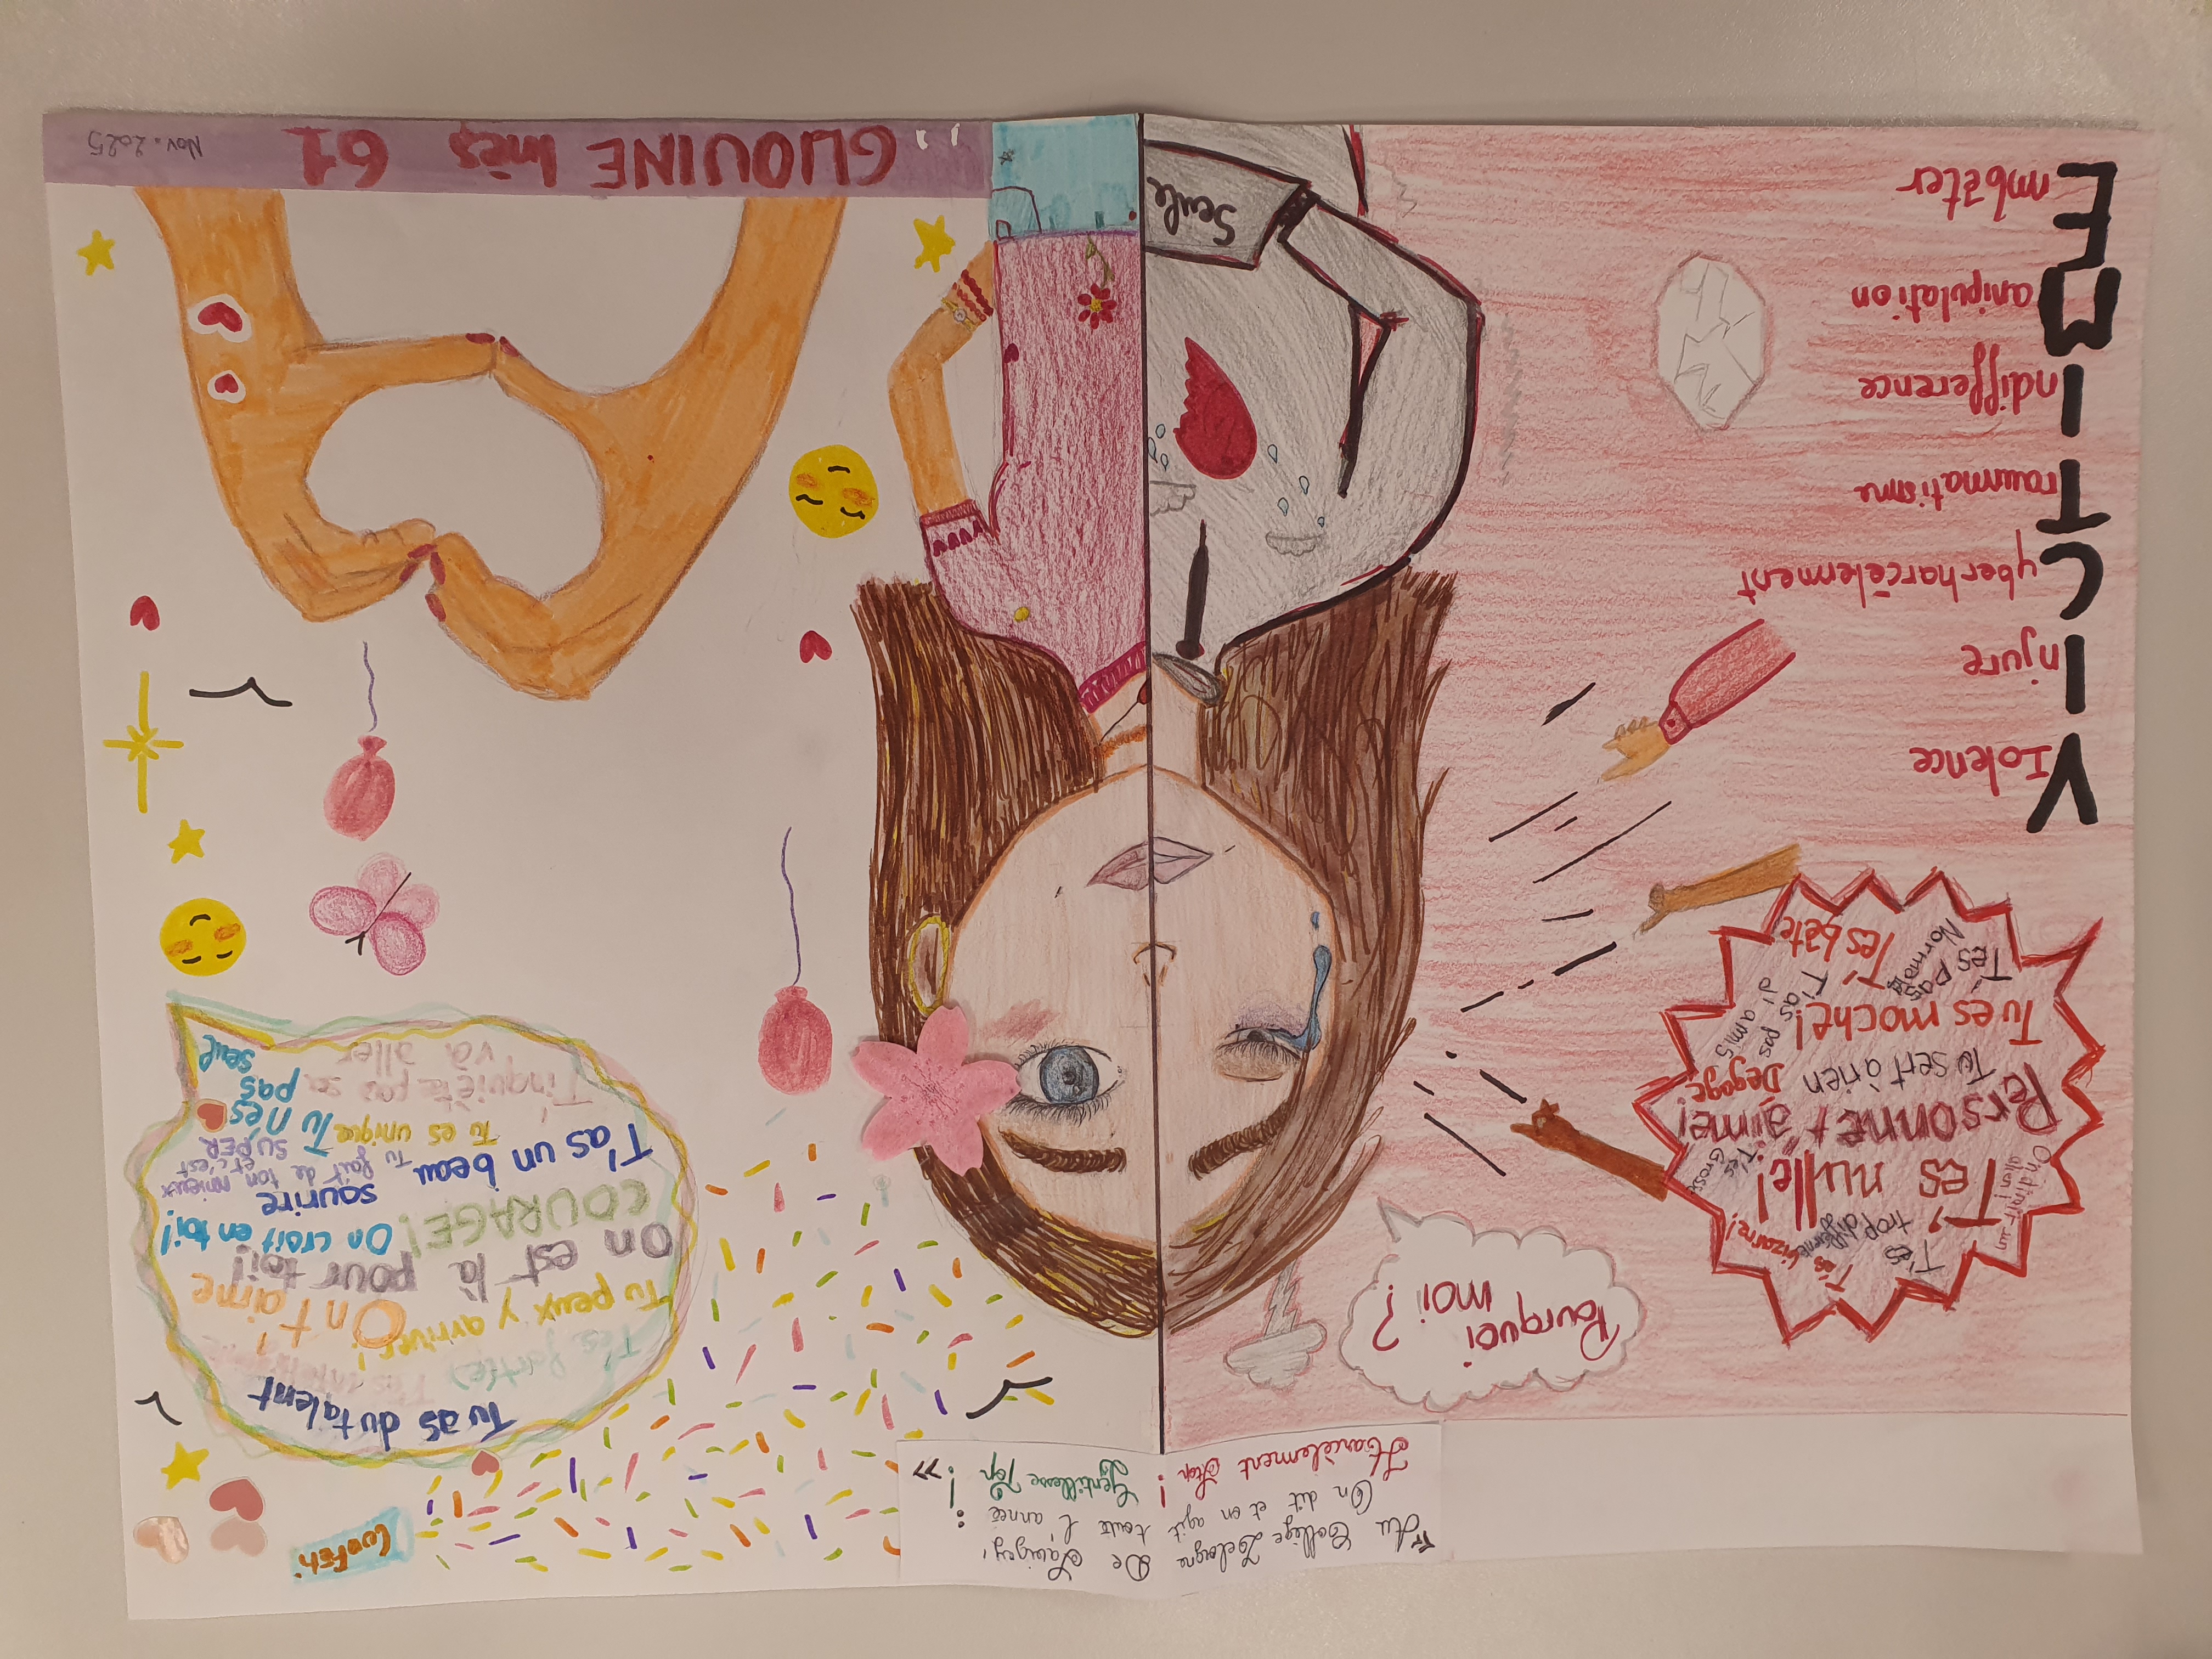 « Au Collège De Savigny,
On dit et on agit toute l'année :
Harcèlement Stop ! Gentillesse Top ! »
Pourquoi
moi ?
T'es
trop différente
T'es
bizarre !
On dirait un
alien !
T'es nulle !
T'es Grosse
Personne t'aime !
Tu sert à rien
Dégage
Tu es moche !
T'as pas
d'amis
T'es pas
Normale
T'es bête
VIolence
Injure
Cyberharcèlement
Traumatisme
Indifférence
Manipulation
Embêter
Seule
Tu as du talent
T'es fort(e)
Tu peux y arriver !
On t'aime
On est là pour toi !
COURAGE !
On croit en toi !
T'as un beau
sourire
Tu fait de ton mieux
et c'est
SUPER
Tu es unique
Tu n'es
pas
seul
T'inquiète pas sa
va aller
GLIOUINE Inès 61
Nov. 2025